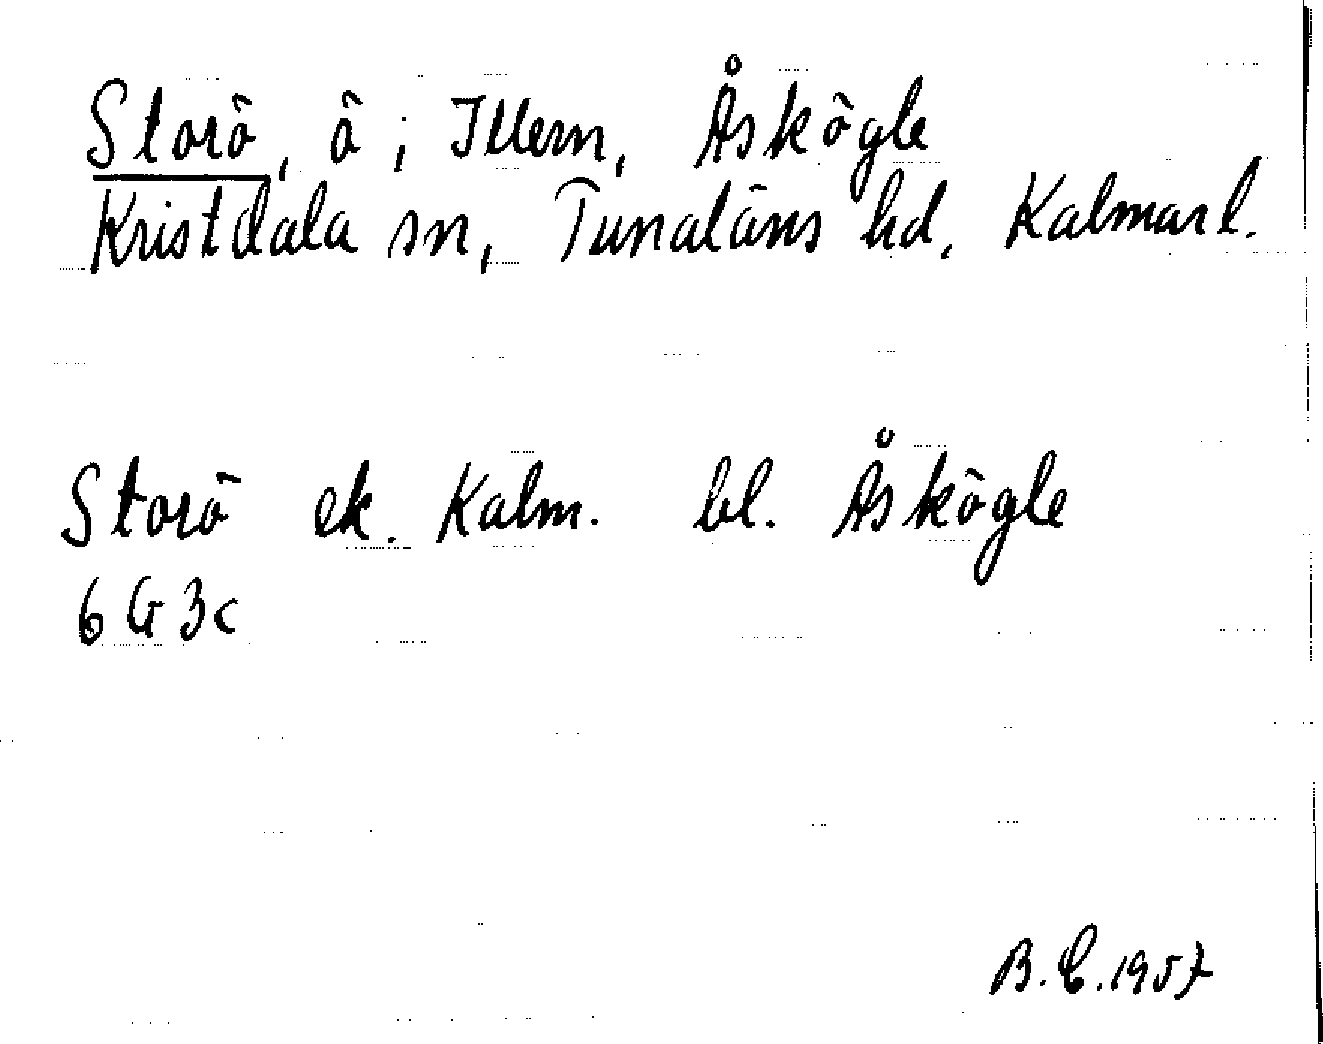 Storö, ö i Illern, Åskögle
Kristdala sn, Tunaläns hd, Kalmar l.
Storö ek. Kalm. bl. Åskögle
6 G 3c
B.E. 1957